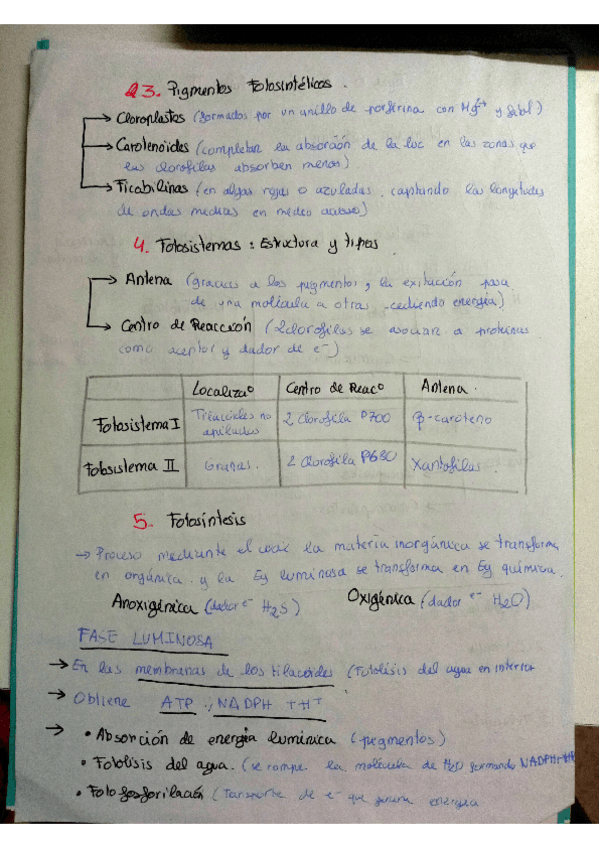 3. Pigmentos Fotosintéticos.
Cloroplastos (formados por un anillo de porfirina con Mg²⁺ y fitol)
Carotenoides (completan su absorción de la luz en las zonas que
las clorofilas absorben menos)
Ficobilinas (en algas rojas o azuladas, captando las longitudes
de ondas medias en medio acuoso)
4. Fotosistemas: Estructura y tipos
Antena (gracias a los pigmentos, la exitación pasa
de una molécula a otras cediendo energía)
Centro de Reacción (2 clorofilas se asocian a proteínas
como aceptor y dador de e⁻)
Localizaº Centro de Reacº Antena.
Fotosistema I Tilacoides no apilados 2 Clorofila P700 β-caroteno
Fotosistema II Granas. 2 Clorofila P680 Xantofilas
5. Fotosíntesis
→ Proceso mediante el cual la materia inorgánica se transforma
en orgánica y la Eg luminosa se transforma en Eg química.
Anoxigénica (dador e⁻ H₂S) Oxigénica (dador e⁻ H₂O)
FASE LUMINOSA
→ En las membranas de los tilacoides (Fotolisis del agua en interior
→ Obtiene ATP y NADPH + H⁺
→ • Absorción de energía lumínica (pigmentos)
• Fotolisis del agua. (se rompe la molécula de H₂O formando NADPH+H⁺
• Fotofosforilación (Transporte de e⁻ que genera energía